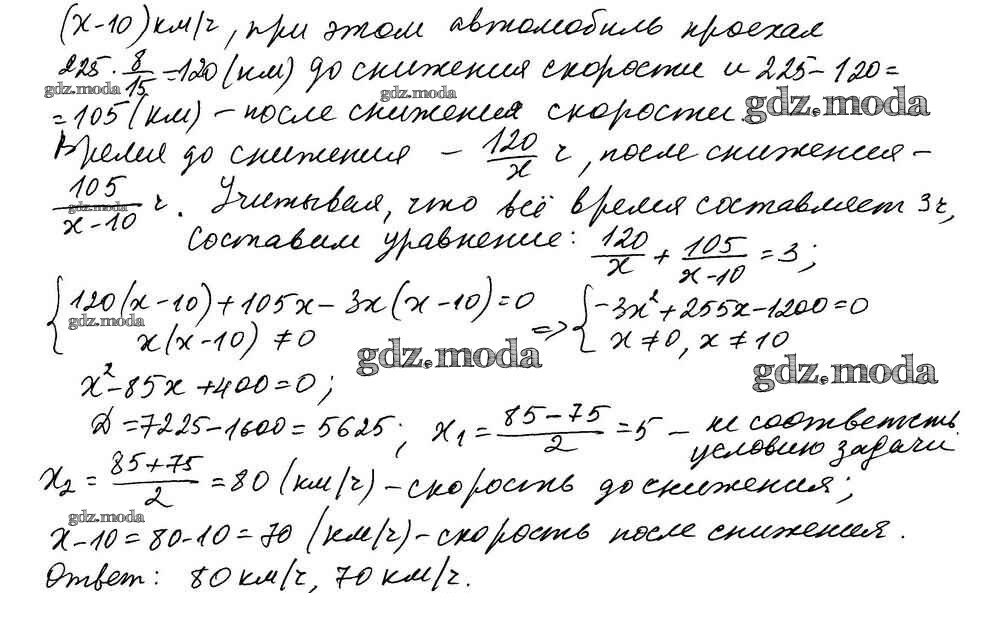 (x-10) км/ч, при этом автомобиль проехал
225 · 8/15 = 120 (км) до снижения скорости и 225 - 120 =
gdz.moda gdz.moda gdz.moda
= 105 (км) - после снижения скорости.
Время до снижения - 120/x ч, после снижения -
105/(x-10) ч. Учитывая, что всё время составляет 3ч,
gdz.moda
составим уравнение: 120/x + 105/(x-10) = 3;
{120(x-10)+105x-3x(x-10)=0 => {-3x²+255x-1200=0
gdz.moda
x(x-10)≠0 x≠0, x≠10
gdz.moda gdz.moda
x²-85x+400=0;
D=7225-1600=5625; x₁ = (85-75)/2 = 5 - не соответств.
условию задачи.
x₂ = (85+75)/2 = 80 (км/ч) - скорость до снижения;
gdz.moda
x-10=80-10=70 (км/ч) - скорость после снижения.
Ответ: 80 км/ч, 70 км/ч.